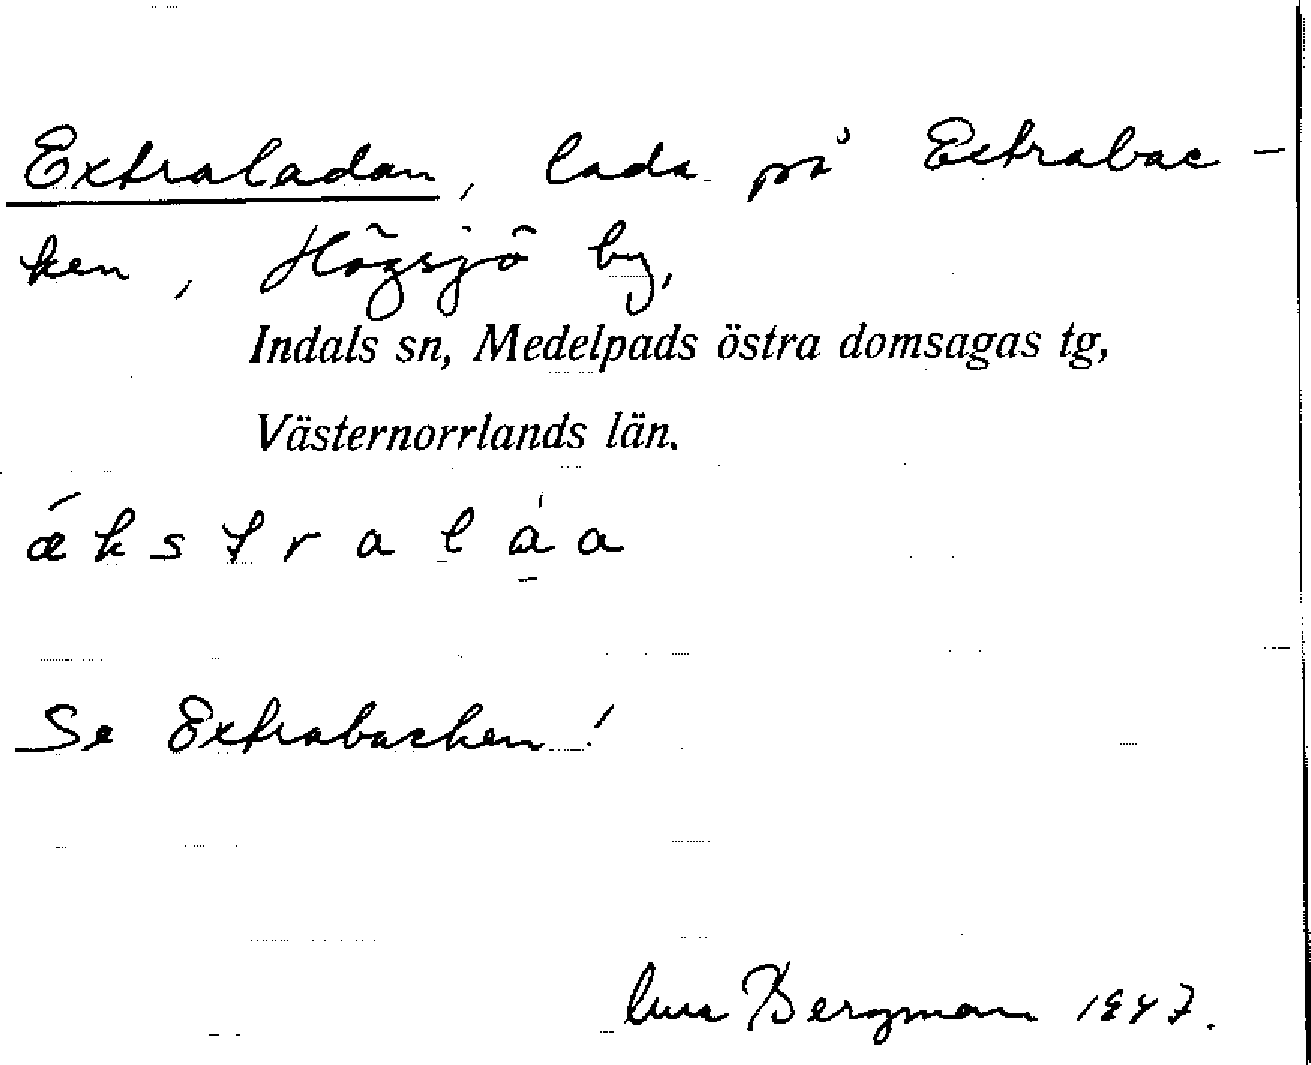 Extraladan, lada på Extrabac-
ken, Högsjö by,
Indals sn, Medelpads östra domsagas tg,
Västernorrlands län.
ǽkstralàa
Se Extrabacken!
Bergman 1947.